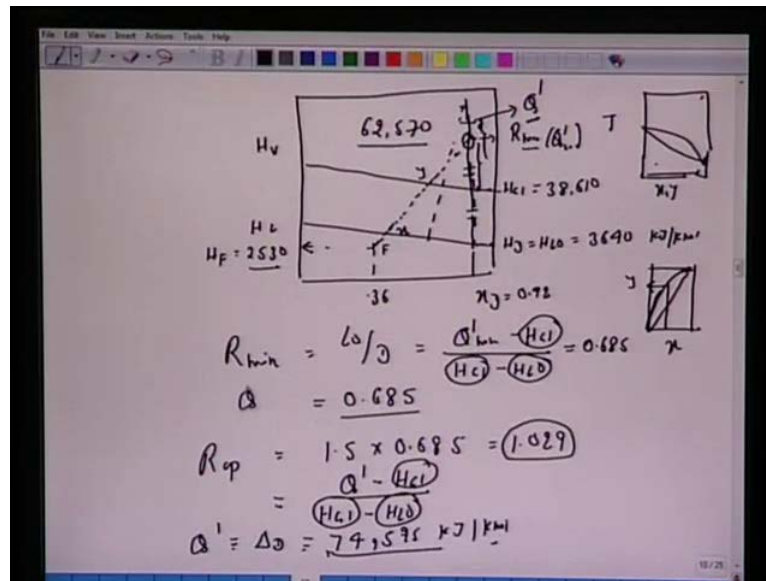 File Edit View Insert Actions Tools Help
62,570
Q'
Rmin (Q'm)
T
x,y
Hv
y
HG1 = 38,610
HL
x
HF = 2530
F
HD = HL0 = 3640 kJ/kmol
.36
xD = 0.98
y
x
Rmin = L0/D = Q'min - HG1 / HG1 - HL0 = 0.685
Q = 0.685
Rop = 1.5 x 0.685 = 1.029
= Q' - HG1 / HG1 - HL0
Q' = ΔD = 74,595 kJ/kmol
18/25